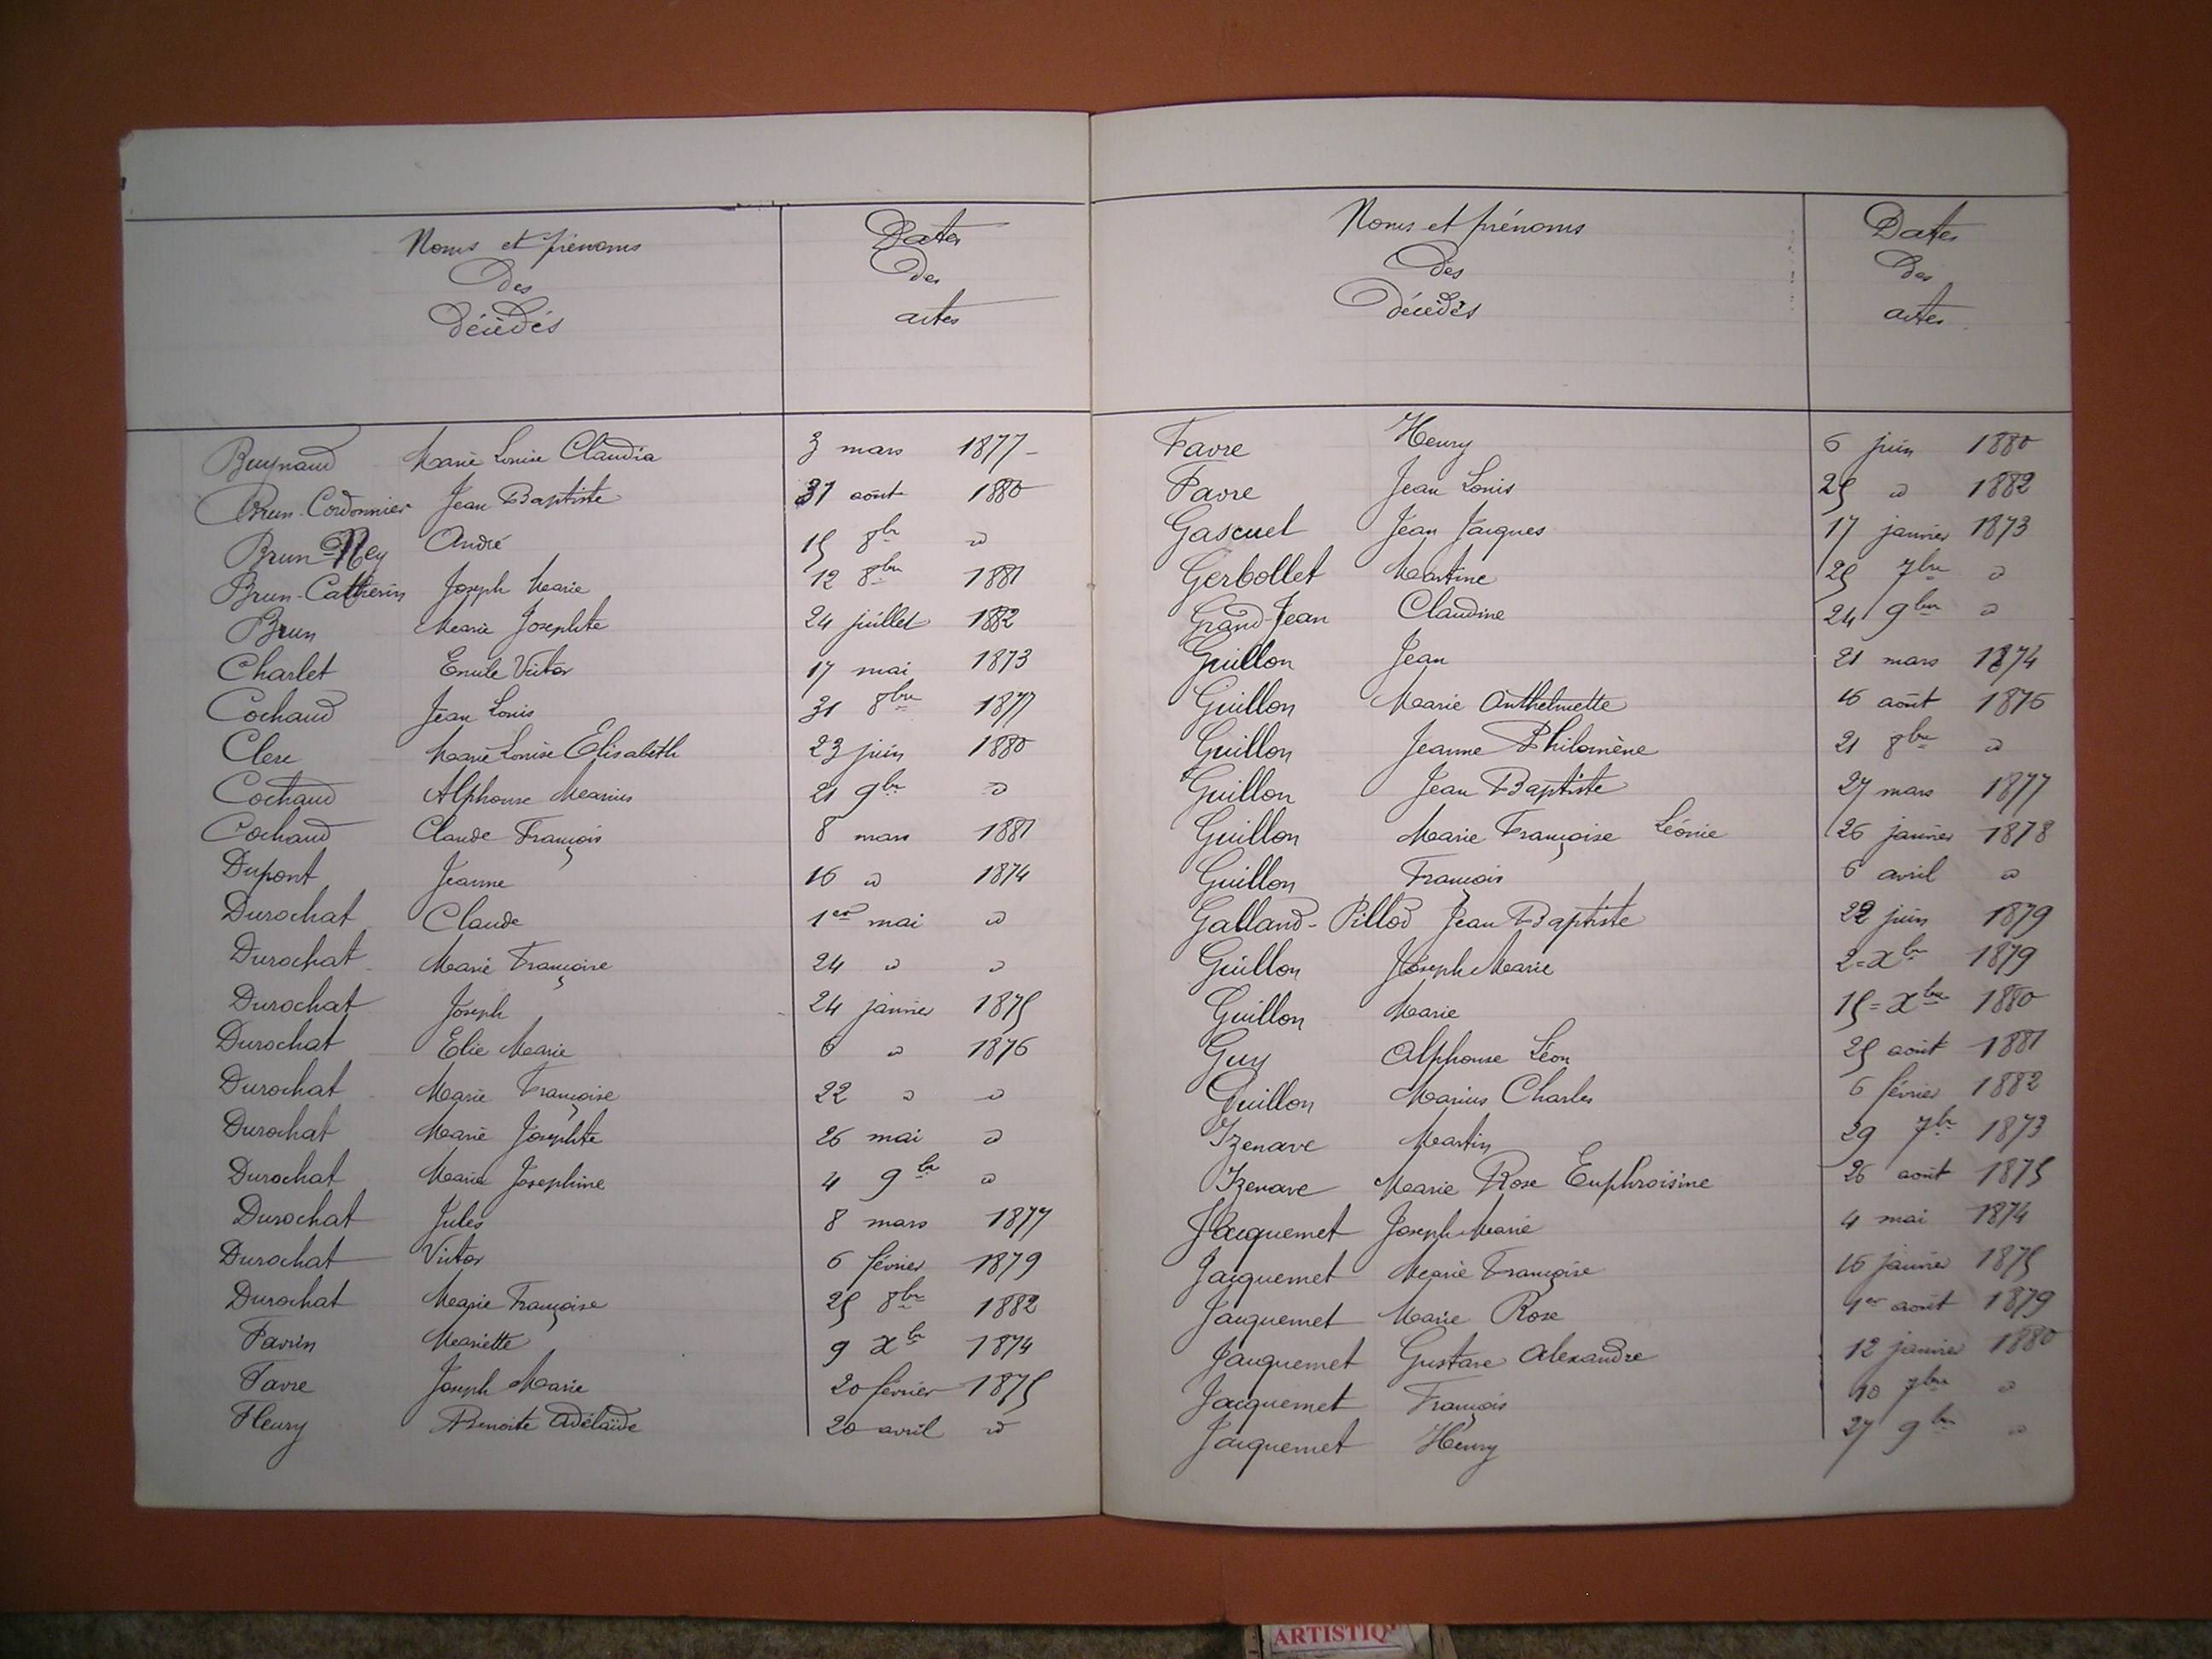 Noms et prénoms
des
décédés
Dates
des
actes
Buynaud Marie Louise Claudia 3 mars 1877
Brun-Cordonnier Jean Baptiste 31 août 1880
Brun-Ney André 15 8bre d
Brun-Catherin Joseph Marie 12 8bre 1881
Brun Marie Josephte 24 juillet 1882
Charlet Emile Victor 17 mai 1873
Cochaud Jean Louis 31 8bre 1877
Clerc Marie Louise Elisabeth 23 juin 1880
Cochaud Alphonse Marius 21 9bre d
Cochaud Claude François 8 mars 1881
Dupont Jeanne 16 d 1874
Durochat Claude 1er mai d
Durochat Marie Françoise 24 d d
Durochat Joseph 24 janvier 1875
Durochat Elie Marie 6 d 1876
Durochat Marie Françoise 22 d d
Durochat Marie Josephte 26 mai d
Durochat Marie Josephine 4 9bre d
Durochat Jules 8 mars 1877
Durochat Victor 6 février 1879
Durochat Marie Françoise 25 8bre 1882
Favrin Mariette 9 Xbre 1874
Favre Joseph Marie 20 février 1875
Fleury Benoite Adélaïde 20 avril d
Noms et prénoms
des
décédés
Dates
des
actes
Favre Henry 6 juin 1880
Favre Jean Louis 25 d 1882
Gascuel Jean Jacques 17 janvier 1873
Gerbollet Martine 25 7bre d
Grand-Jean Claudine 24 9bre d
Guillon Jean 21 mars 1874
Guillon Marie Anthelmette 16 août 1876
Guillon Jeanne Philomène 21 8bre d
Guillon Jean Baptiste 27 mars 1877
Guillon Marie Françoise Léonie 26 janvier 1878
Guillon François 6 avril d
Galland-Pillod Jean Baptiste 22 juin 1879
Guillon Joseph Marie 2=Xbre 1879
Guillon Marie 15=Xbre 1880
Guy Alphonse Léon 25 août 1881
Guillon Marius Charles 6 février 1882
Izenave Martin 29 7bre 1873
Izenave Marie Rose Euphroisine 26 août 1875
Jacquemet Joseph Marie 4 mai 1874
Jacquemet Marie Françoise 16 janvier 1875
Jacquemet Marie Rose 1er août 1879
Jacquemet Gustave Alexandre 12 janvier 1880
Jacquemet François 10 7bre d
Jacquemet Henry 27 9bre d
ARTISTIQ